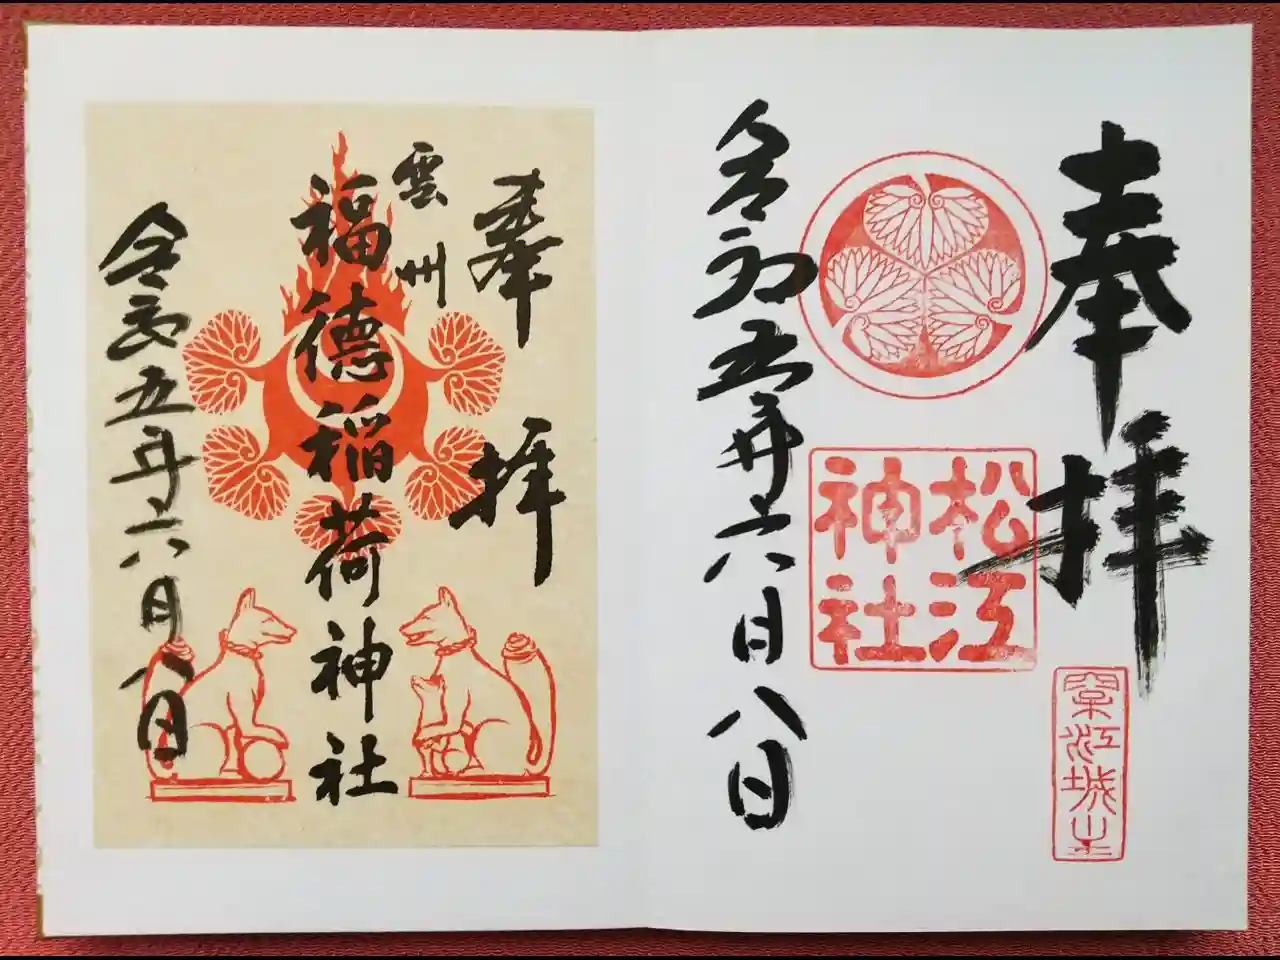 奉拝
松江
神社
松江城山
令和五年六月八日
奉拝
雲州
福徳稲荷神社
令和五年六月八日